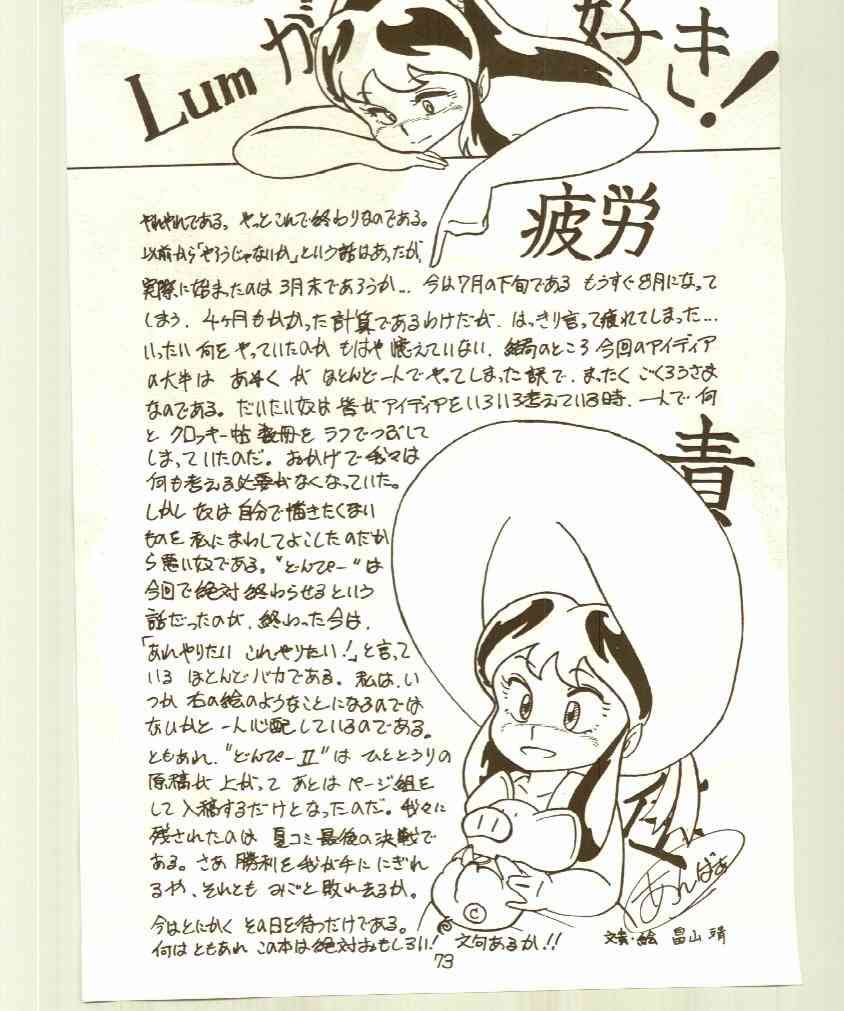 Lumが好き!
疲労
やれやれである、やっとこれで終わりなのである。
以前から「やろうじゃないか」という話はあったが、
実際に始まったのは 3月末であろうか… 今は7月の下旬である もうすぐ8月になって
しまう、4ヶ月もかかった計算であるわけだが、はっきり言って疲れてしまった…
いったい何をやっていたのか もはや憶えていない、結局のところ 今回のアイディア
の大半は あめく が ほとんど一人でやってしまった訳で、まったく ごくろうさま
なのである。だいたい奴は皆がアイディアをいろいろ考えている時、一人で 何
と クロッキー帖 数冊を ラフでつぶして
しまっていたのだ。おかげで我々は
何も考える必要がなくなっていた。
しかし 奴は 自分で描きたくない
ものを 私にまわしてよこしたのだか
ら悪い奴である。"どんぴー"は
今回で絶対終わらせるという
話だったのが、終わった今は、
「あれやりたい これやりたい!」と言って
いる ほとんどバカである。私は、い
つか 右の絵のようなことになるのでは
ないかと 一人心配しているのである。
ともあれ、"どんぴーⅡ"は ひととうりの
原稿が 上がって あとは ページ組を
して 入稿するだけとなったのだ。我々に
残されたのは 夏コミ 最後の決戦で
ある。さあ 勝利を 我が手に にぎれ
るや、それとも みごと 敗れ去るか。
今はとにかく その日を待つだけである。
何はともあれ この本は絶対おもしろい! 文句あるか!!
責任
あんばぁ
文責・絵 畠山 靖
73